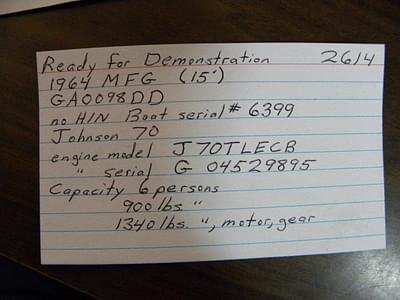 Ready for Demonstration 2614
1964 MFG (15')
GA0098DD
no HIN Boat serial # 6399
Johnson 70
engine model J70TLECB
" serial G 04529895
Capacity 6 persons
900 lbs. "
1340 lbs. ", motor, gear